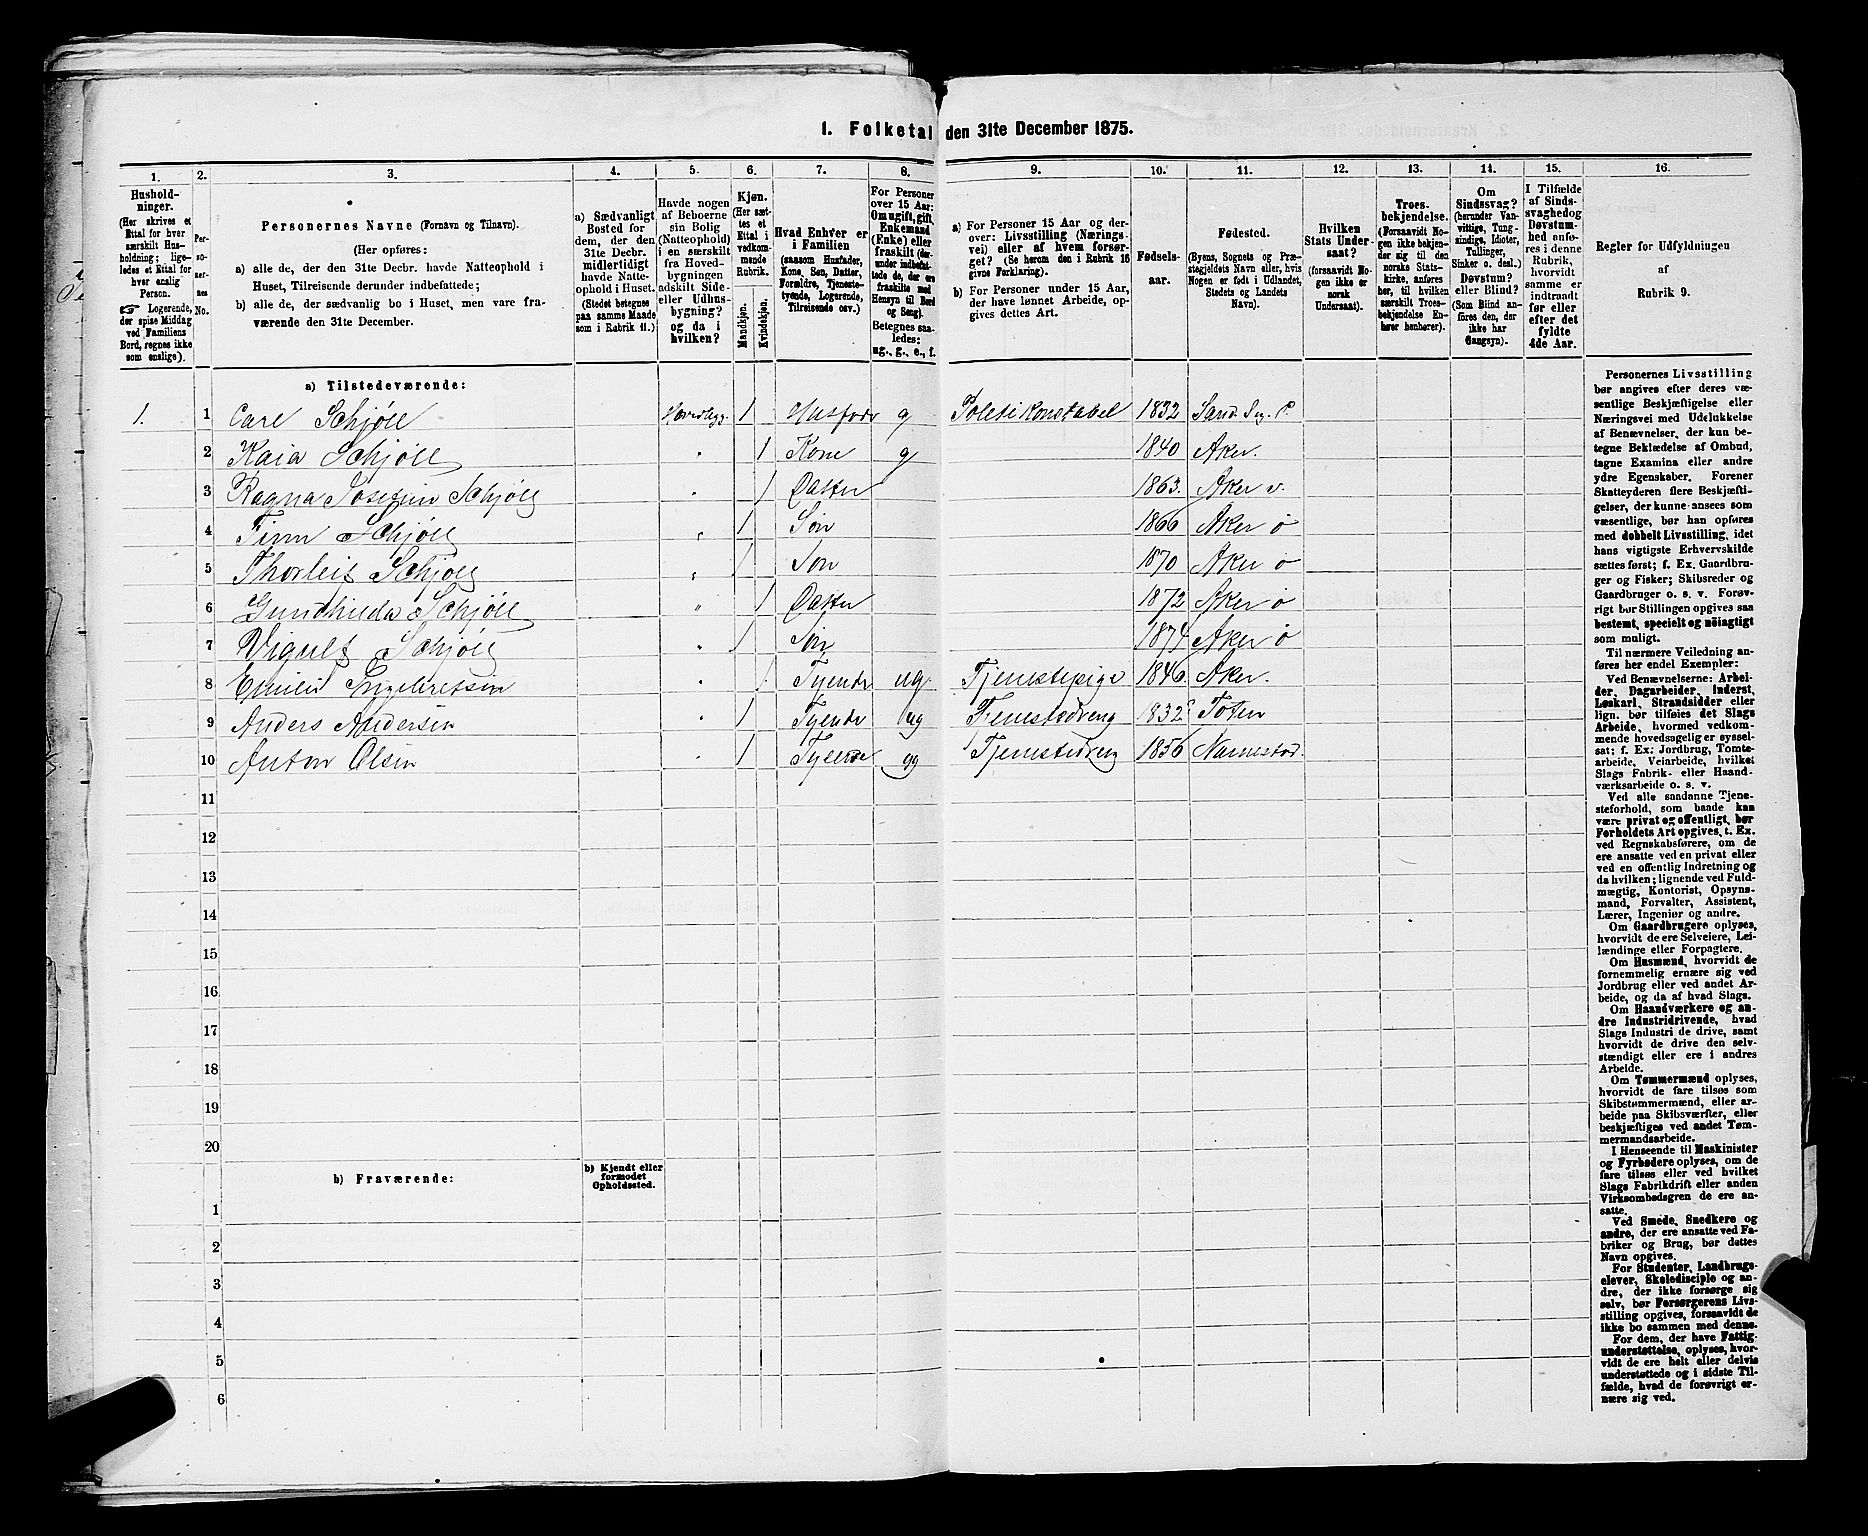 1. Folketal den 31te December 1875.
1.
Hushold-
ninger.
(Her skrives et
Ettal for hver
særskilt Hus-
holdning; lige-
ledes et Ettal for
hver enslig
Person.
Logerende,
der spise Middag
ved Familiens
Bord, regnes ikke
som enslige).
2.
Per-
so-
ner-
nes
No.
3.
Personernes Navne (Fornavn og Tilnavn).
(Her opføres:
a) alle de, der den 31te Decbr. havde Natteophold i
Huset, Tilreisende derunder indbefattede;
b) alle de, der sædvanlig bo i Huset, men vare fra-
værende den 31te December.
4.
a) Sædvanligt
Bosted for
dem, der den
31te Decbr.
midlertidigt
havde Natte-
ophold i Huset.
(Stedet betegnes
paa samme Maade
som i Rubrik 11.)
5.
Havde nogen
af Beboerne
sin Bolig
(Natteophold)
i en særskilt
fra Hoved-
bygningen
adskilt Side-
eller Udhus-
bygning?
og da i
hvilken?
6.
Kjøn.
(Her sæt-
tes et
Ettal i
vedkom-
mende
Rubrik.
Mandkjøn.
Kvindekjøn.
7.
Hvad Enhver er
i Familien
(saasom Husfader,
Kone, Søn, Datter,
Forældre, Tjeneste-
tyende, Logerende,
Tilreisende osv.)
8.
For Personer
over 15 Aar:
Om ugift, gift,
Enkemand
(Enke) eller
fraskilt (der-
under indbefat-
tede de, der ere
fraskilte med
Hensyn til Bord
og Seng).
Betegnes saa-
ledes:
ug., g., e., f.
9.
a) For Personer 15 Aar og der-
over: Livsstilling (Nærings-
vei) eller af hvem forsør-
get? (Se herom den i Rubrik 16
givne Forklaring).
b) For Personer under 15 Aar,
der have lønnet Arbeide, op-
gives dettes Art.
10.
Fødsels-
aar.
11.
Fødested.
(Byens, Sognets og Præ-
stegjeldets Navn eller, hvis
Nogen er født i Udlandet,
Stedets og Landets
Navn).
12.
Hvilken
Stats Under-
saat?
(forsaavidt No-
gen ikke er
norsk
Undersaat).
13.
Troes-
bekjendelse.
(Forsaavidt No-
gen ikke bekjen-
der sig til den
norske Stats-
kirke, anføres
her, til hvilken
særskilt Troes-
bekjendelse En-
hver henhører).
14.
Om
Sindssvag?
(herunder Van-
vittige, Tung-
sindige, Idioter,
Tullinger,
Sinker o. desl.)
Døvstum?
eller Blind?
(Som Blind an-
føres den, der
ikke har
Gangsyn).
15.
I Tilfælde
af Sinds-
svaghed og
Døvstum-
hed anfø-
res i denne
Rubrik,
hvorvidt
samme er
indtraadt
før eller
efter det
fyldte
4de Aar.
16.
Regler for Udfyldningen
af
Rubrik 9.
a) Tilstedeværende:
1. 1 Carl Schjöll Hovedbyg. 1 Husfader g Politikonstabel 1832 Sand
2 Kaia Schjöll " 1 Kone g 1840 Aker.
3 Ragna Josefine Schjöll " 1 Datter 1863. Aker v.
4 Finn Schjöll " 1 Søn 1866 Aker ö
5 Thorleif Schjöll " 1 Søn 1870 Aker ö
6 Gundhilda Schjöll " 1 Datter 1872 Aker ö
7 Schjöll " 1 Søn 1874 Aker ö
8 Emilie Engebretsen " 1 Tyende ug Tjenestepige 1846. Aker.
9 Anders Andersen " 1 Tyende ug Tjenestedreng 1832 Toten
10 Anton Olsen " 1 Tyende ug Tjenestedreng 1856 Nannestad.
11
12
13
14
15
16
17
18
19
20
b) Fraværende:
b) Kjendt eller
formodet
Opholdssted.
1
2
3
4
5
6
Personernes Livsstilling
bør angives efter deres væ-
sentlige Beskjæftigelse eller
Næringsvei med Udelukkelse
af Benævnelser, der kun be-
tegne Beklædelse af Ombud,
tagne Examina eller andre
ydre Egenskaber. Forener
Skatteyderen flere Beskjæfti-
gelser, der kunne ansees som
væsentlige, bør han opføres
med dobbelt Livsstilling, idet
hans vigtigste Erhvervskilde
sættes først; f. Ex. Gaardbru-
ger og Fisker; Skibsreder og
Gaardbruger o. s. v. Forøv-
rigt bør Stillingen opgives saa
bestemt, specielt og nöiagtigt
som muligt.
Til nærmere Veiledning an-
føres her endel Exempler:
Ved Benævnelserne: Arbei-
der, Dagarbeider, Inderst,
Løskarl, Strandsidder eller
lign. bør tilføies det Slags
Arbeide, hvormed vedkom-
mende hovedsagelig er syssel-
sat; f. Ex: Jordbrug, Tomte-
arbeide, Veiarbeide, hvilket
Slags Fabrik- eller Haand-
værksarbeide o. s. v.
Ved alle saadanne Tjene-
steforhold, som baade kan
være privat og offentligt, bør
Forholdets Art opgives, t. Ex.
ved Regnskabsførere, om de
ere ansatte ved en privat eller
ved en offentlig Indretning og
da hvilken; lignende ved Fuld-
mægtig, Kontorist, Opsyns-
mand, Forvalter, Assistent,
Lærer, Ingeniør og andre.
Om Gaardbrugere oplyses,
hvorvidt de ere Selveiere, Lei-
lændinge eller Forpagtere.
Om Husmænd, hvorvidt de
fornemmelig ernære sig ved
Jordbrug eller ved andet Ar-
beide, og da af hvad Slags.
Om Haandværkere og an-
dre Industridrivende, hvad
Slags Industri de drive, samt
hvorvidt de drive den selv-
stændigt eller ere i andres
Arbeide.
Om Tømmermænd oplyses,
hvorvidt de fare tilsøs som
Skibstømmermænd, eller ar-
beide paa Skibsværfter, eller
beskjæftiges ved andet Tøm-
mermandsarbeide.
I Henseende til Maskinister
og Fyrbødere oplyses, om de
fare tilsøs eller ved hvilket
Slags Fabrikdrift eller anden
Virksombedsgren de ere an-
satte.
Ved Smede, Snedkere og
andre, der ere ansatte ved Fa-
briker og Brug, bør dettes
Navn opgives.
For Studenter, Landbrugs-
elever, Skoledisciple og an-
dre, der ikke forsørge sig
selv, bør Forsørgerens Livs-
stilling opgives, forsaavidt de
ikke bo sammen med denne.
For dem, der have Fattig-
understøttelse, oplyses, hvor-
vidt de ere helt eller delvis
understøttede og i sidste Til-
fælde, hvad de forøvrigt er-
nære sig ved.